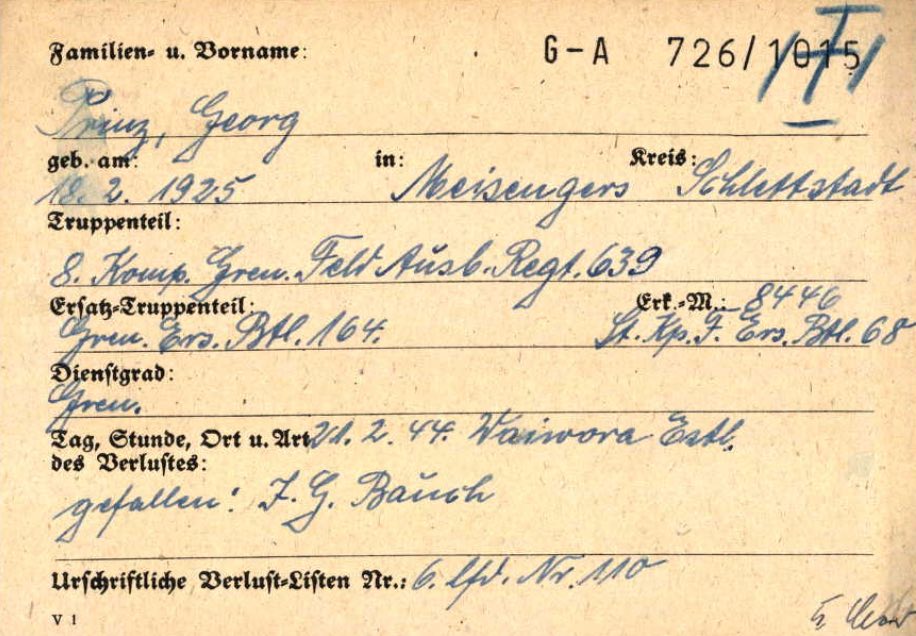 Familien- u. Vorname: G-A 726/1015
Prinz, Georg
geb. am: in: Kreis:
18. 2. 1925 Meisengers Schlettstadt
Truppenteil:
8. Komp. Gren. Feld Ausb. Regt. 639
Ersatz-Truppenteil: Erk.-M.: 8446
Gren. Ers. Btl. 164. St. Kp. J. Ers. Btl. 68
Dienstgrad:
Gren.
Tag, Stunde, Ort u. Art 21. 2. 44. Waiwora Estl.
des Verlustes:
gefallen! J. G. Bauch
Urschriftliche Verlust-Listen Nr.: 6. lfd. Nr. 110
V 1